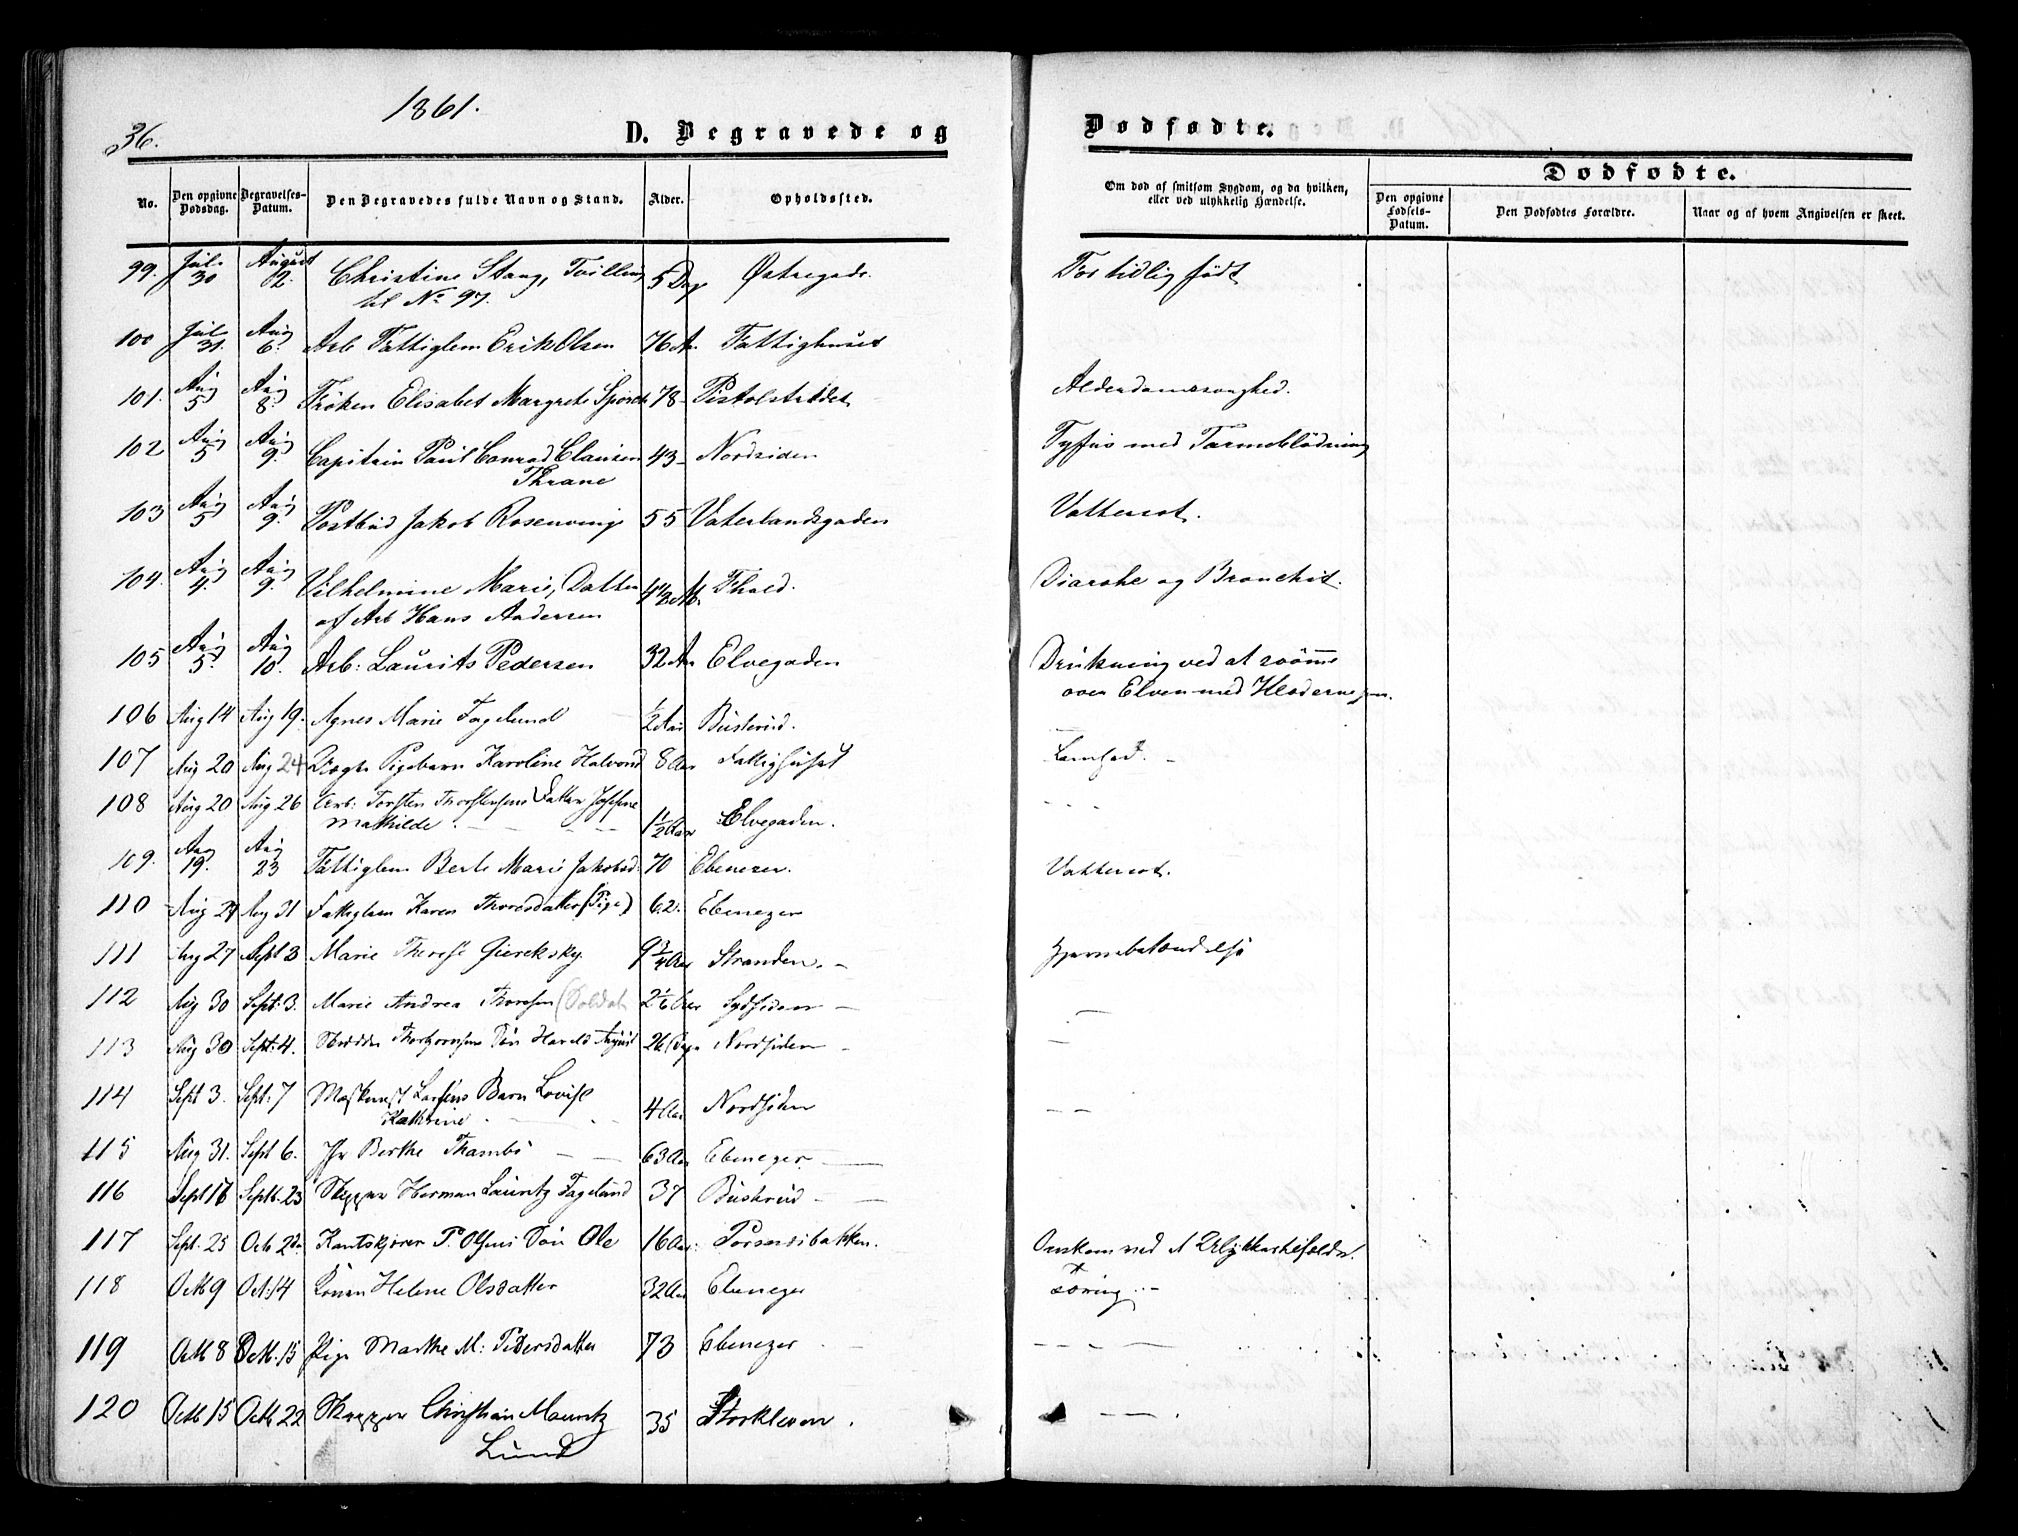 36.
1861.
D. Begravede og
Dødfødte.
No.
Den opgivne Dødsdag.
Begravelses-Datum.
Den Begravedes fulde Navn og Stand.
Alder.
Opholdssted.
Om død af smitsom Sygdom, og da hvilken, eller ved ulykkelig Hændelse.
Dødfødte.
Den opgivne Fødsels-Datum.
Den Dødfødtes Forældre.
Naar og af hvem Angivelsen er skeet.
99. Juli 30 August 02. Christine Stang, Tvilling 5 Dag Østregade. For tidlig født
til No 97.
100 Juli 31. Aug 6. Arb Fattiglem Erik Olsen 76 A. Fattighuset
101. Aug 5 Aug 8. Frøken Elisabet Margrete 78 Pistolstrædet Alderdomssvaghed.
102 Aug 5 Aug 9. Capitain Paul Conrad Clausen 43 Nordsiden Tyfus med Tarmeblødning
Thrane
103 Aug 5 Aug 9. Postbud Jakob Rosenvinge 55 Vaterlandsgaden Vattersot.
104. Aug 4. Aug 9. Vilhelmine Marie, Datter Diarohe og Bronchit.
af Arb Hans Andersen
105 Aug 5. Aug 10. Arb: Laurits Pedersen 32 Aar Elvegaden Drukning ved at svømme
over Elven med Klæderne paa.
106 Aug 14 Aug 19. Agnes Marie Fagelund 1/2 Aar Buskrud.
107 Aug 20 Aug 24 Pigebarn Karoline Halvorsd 8 Aar Fattighuset
108 Aug 20 Aug 26 Arb: Torsten Thorstensens Datter Josefine
Mathilde 1 1/2 Aar Elvegaden.
109. Aug 19. Aug 23 Fattiglem Berte Marie Jakobsd 70 Ebenezer. Vattersot.
110 Aug 27 Aug 31 Fattiglem Karen Thoresdatter (Pige) 62. Ebenezer
111 Aug 27 Sept 3 Marie Therese 9 3/4 Aar Stranden. Hjernebetændelse
112 Aug 30 Sept: 3. Marie Andrea Thoresen (Soldat 2 1/6 Aar Sydsiden
113 Aug 30 Sept: 4. Søn Harald August 26 Dage Nordsiden
114 Sept 3. Sept: 7 Larsens Barn Lovise
Kathrine 4 Aar Nordsiden
115 Aug 31. Sept 6. Berthe 63 Aar Ebenezer
116 Sept 17 Septb. 23 Skipper Herman Lauritz Fagelund 37 Buskrud
117 Sept. 25 Octb 2den P. Olsens Søn Ole 16 Aar: Omkom ved et Ulykkestilfælde.
118 Octb 9 Oct: 14 Konen Helene Olsdatter 32 Aar Ebenezer Tæring.
119 Octb 8 Octb. 15 Pige Marthe M: Pedersdatter 73 Ebenezer
120 Octb 15 Octb 22 Skipper Christian Mauritz 35 Storkleven.
Lund